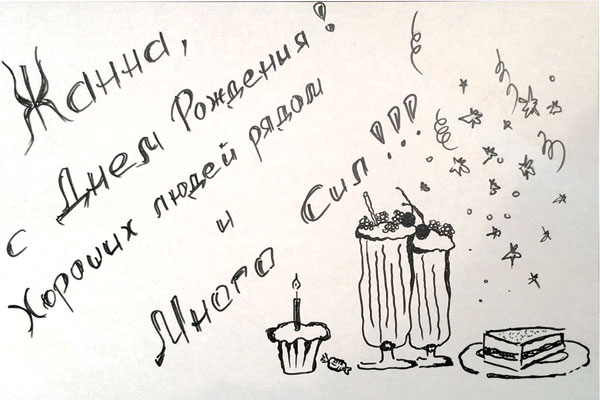 Жанна,
с Днем Рождения!
Хороших людей рядом
и
Много Сил!!!